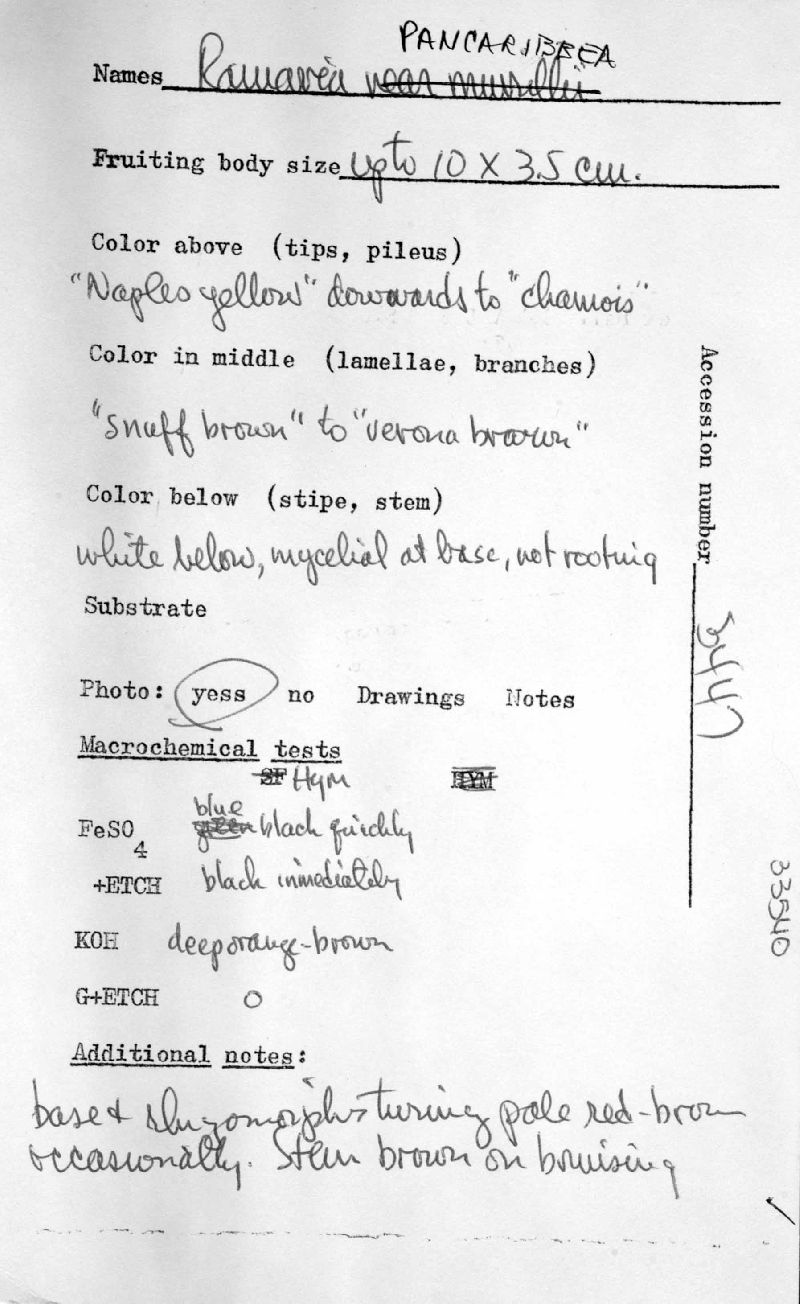 PANCARIBBEA
Names Ramaria near murrillii
Fruiting body size upto 10 X 3.5 cm.
Color above (tips, pileus)
"Naples yellow" downwards to "chamois"
Color in middle (lamellae, branches)
"snuff brown" to "verona brown"
Color below (stipe, stem)
white below, mycelial at base, not rooting
Substrate
Photo: yess no Drawings Notes
Macrochemical tests
SF Hym HYM
blue
FeSO4 green black quickly
+ETCH black immediately
KOH deep orange-brown
G+ETCH O
Additional notes:
base + rhizomorphs turning pale red-brown
occasionally. Stem brown on bruising
Accession number 3447
33540